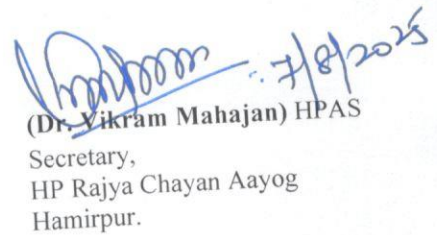 7/8/2025
(Dr. Vikram Mahajan) HPAS
Secretary,
HP Rajya Chayan Aayog
Hamirpur.